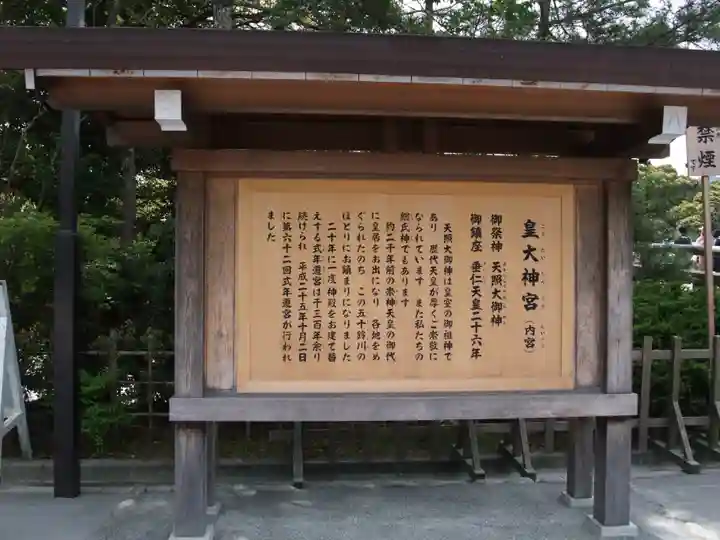 皇大神宮（内宮）
御祭神 天照大御神
御鎮座 垂仁天皇二十六年
天照大御神は皇室の御祖神で
あり 歴代天皇が厚くご崇敬に
なられています また私たちの
総氏神でもあります
約二千年前の崇神天皇の御代
に皇居をお出になり 各地をめ
ぐられたのち この五十鈴川の
ほとりにお鎮まりになりました
二十年に一度神殿をお建て替
えする式年遷宮は千三百年余り
続けられ 平成二十五年十月二日
に第六十二回式年遷宮が行われ
ました
禁煙